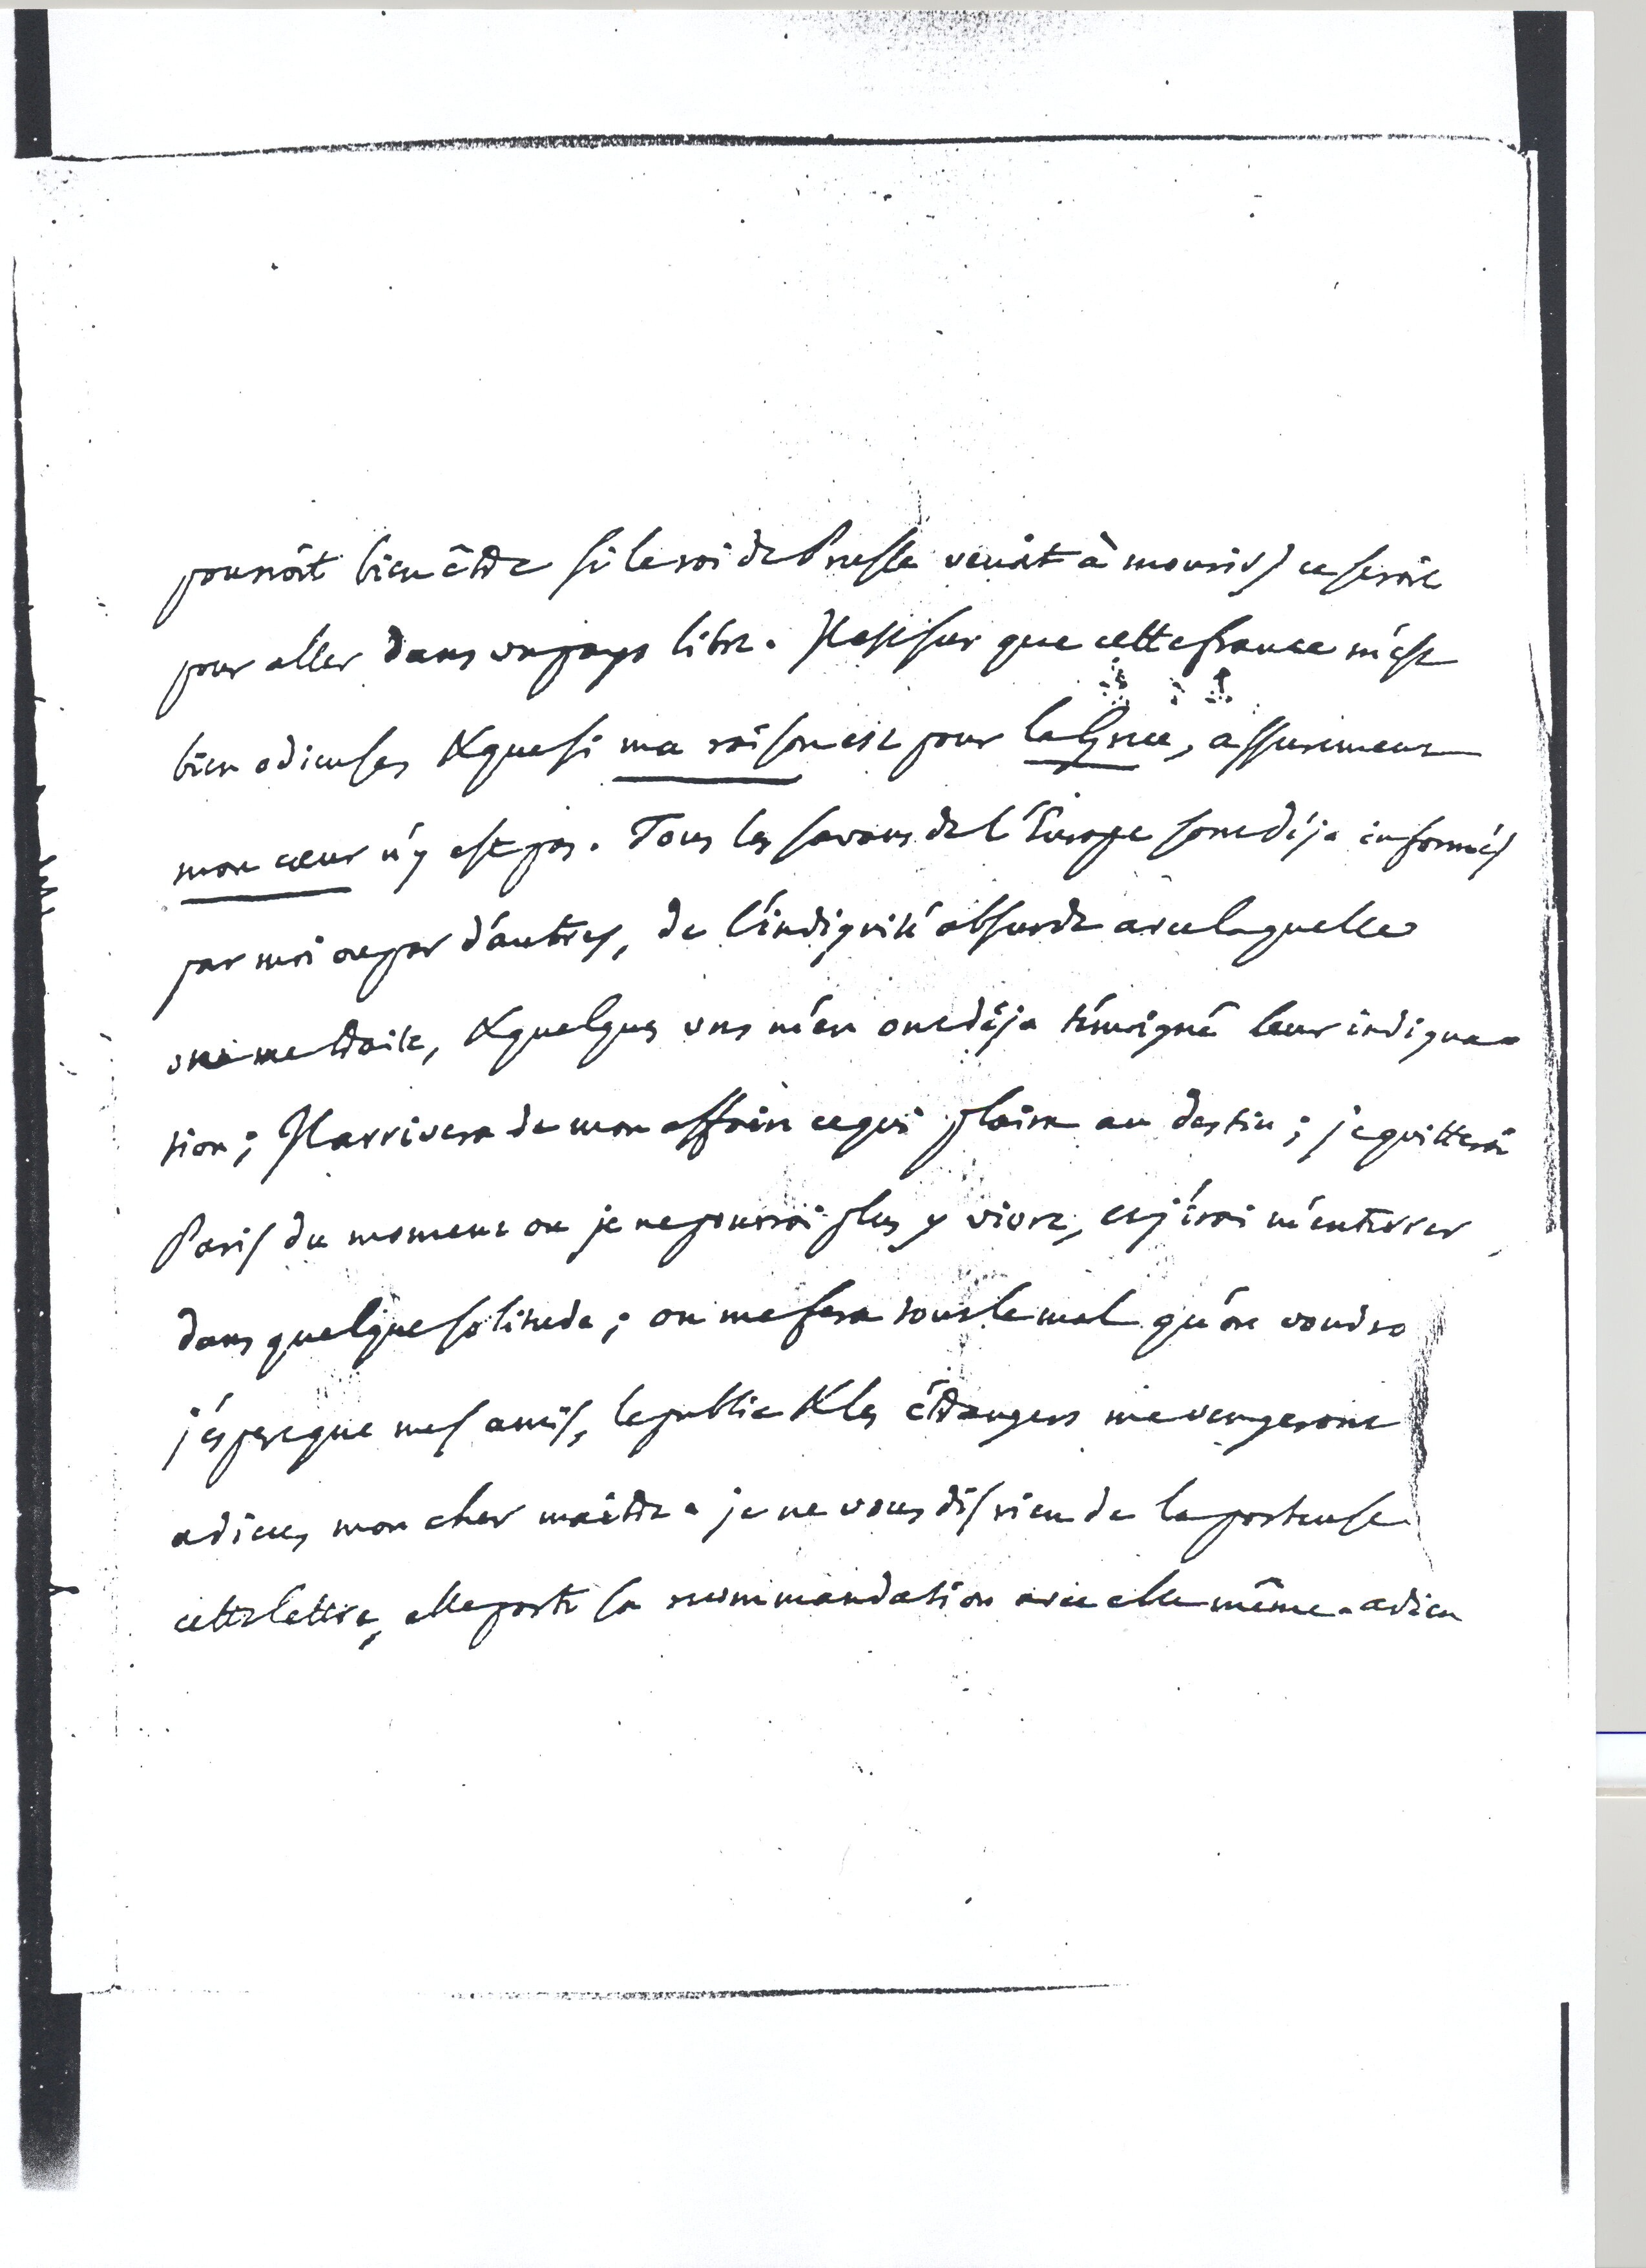 pourroit bien être si le roi de Prusse venoit à mourir) ce seroit
pour aller dans un pays libre. Il est sur que cette france m'est
bien odieuse, & que si ma raison est pour la Grece, assurement
mon cœur n'y est pas. Tous les savans de l'Europe sont déja informés
par moi ou par d'autres, de l'indignité absurde avec laquelle
on me traite, & quelques uns m'en ont déja témoigné leur indigna-
tion; Il arrivera de mon affaire ce qui plaira au destin; je quitterai
Paris du moment ou je ne pourrai plus y vivre, et j'irai m'enterrer
dans quelque solitude; on me fera tout le mal qu'on voudra
j'espere que mes amis, le public & les étrangers me vengeront
adieu, mon cher maître. je ne vous dis rien de la porteuse
cette lettre, elle porte sa recommandation avec elle même. adieu